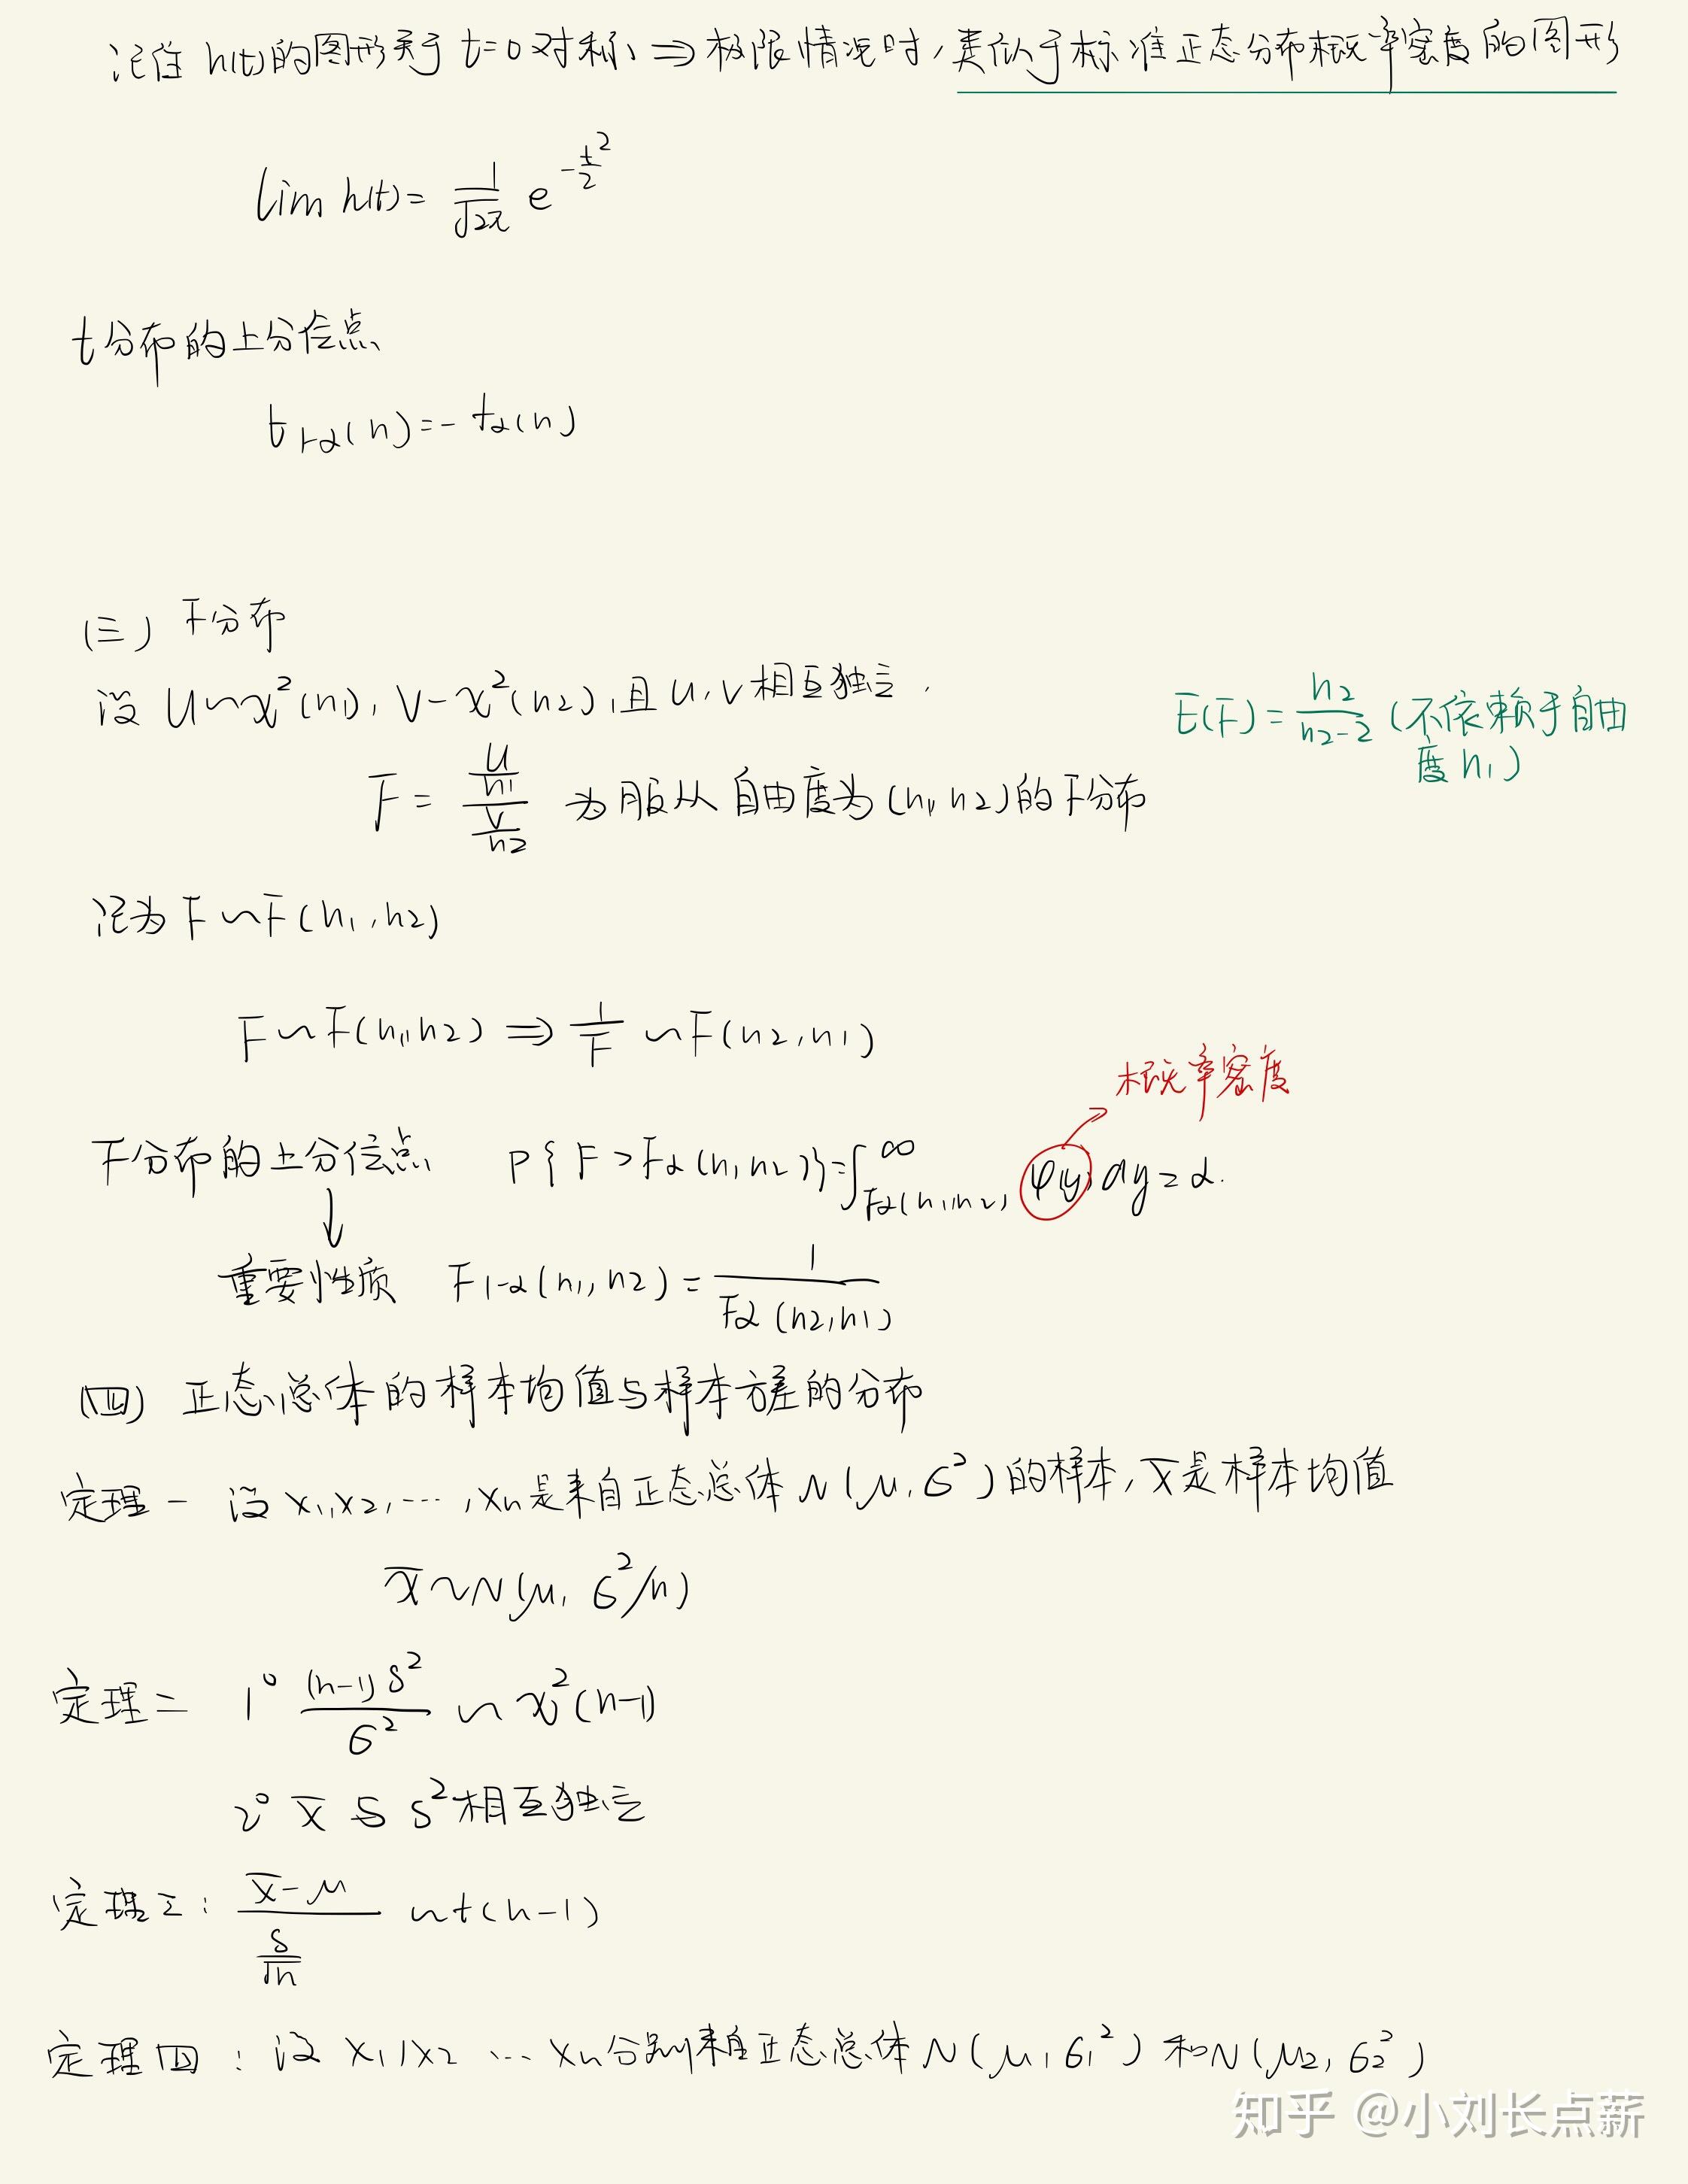 记住 h(t)的图形关于 t=0对称、⇒极限情况时,类似于标准正态分布概率密度的图形
lim h(t)= 1/√2π e^(-t²/2)
t分布的上分位点
t1-α(n)=-tα(n)
(三) F分布
设 U~χ²(n1), V~χ²(n2),且 U,V相互独立.
E(F)= n2/(n2-2) (不依赖于自由
度 n1)
F = (U/n1)/(V/n2) 为服从自由度为(n1,n2)的F分布
记为 F~F(n1,n2)
F~F(n1,n2) ⇒ 1/F ~F(n2,n1)
概率密度
F分布的上分位点 P{F>Fα(n1,n2)}=∫_{Fα(n1,n2)}^∞ φ(y)dy=α.
重要性质 F1-α(n1,n2)= 1/Fα(n2,n1)
(四) 正态总体的样本均值与样本方差的分布
定理一 设 x1,x2,…,xn是来自正态总体 N(μ,σ²)的样本,x̄是样本均值
x̄~N(μ,σ²/n)
定理二 1° (n-1)S²/σ² ~ χ²(n-1)
2° x̄ 与 S²相互独立
定理三: (x̄-μ)/(S/√n) ~t(n-1)
定理四:设 x1,x2 … xn分别来自正态总体 N(μ1,σ1²) 和N(μ2,σ2²)
知乎 @小刘长点薪